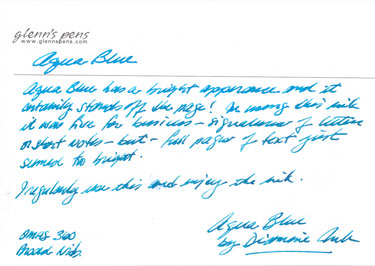 glenn's pens
www.glennspens.com
Aqua Blue
Aqua Blue has a bright appearance and it
certainly stands off the page! In using this ink
it was fine for business - signatures of letters
or short notes - but - full pages of text just
seemed to bright.
I regularly use this and enjoy the ink.
Aqua Blue
by Diamine Ink
Omas 360
Broad Nib.